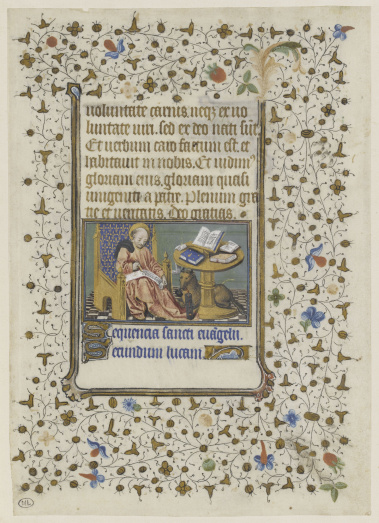 uoluntate carnis. neq; ex uo
luntate uiri. sed ex deo nati sūt
Et uerbum caro factum est. et
habitauit in nobis. Et uidim⁹
gloriam eius. gloriam quasi
unigeniti a patre. Plenum gra
cie et ueritatis. Deo gratias.
Sequencia sancti euāgelii.
Secundum lucam
NL